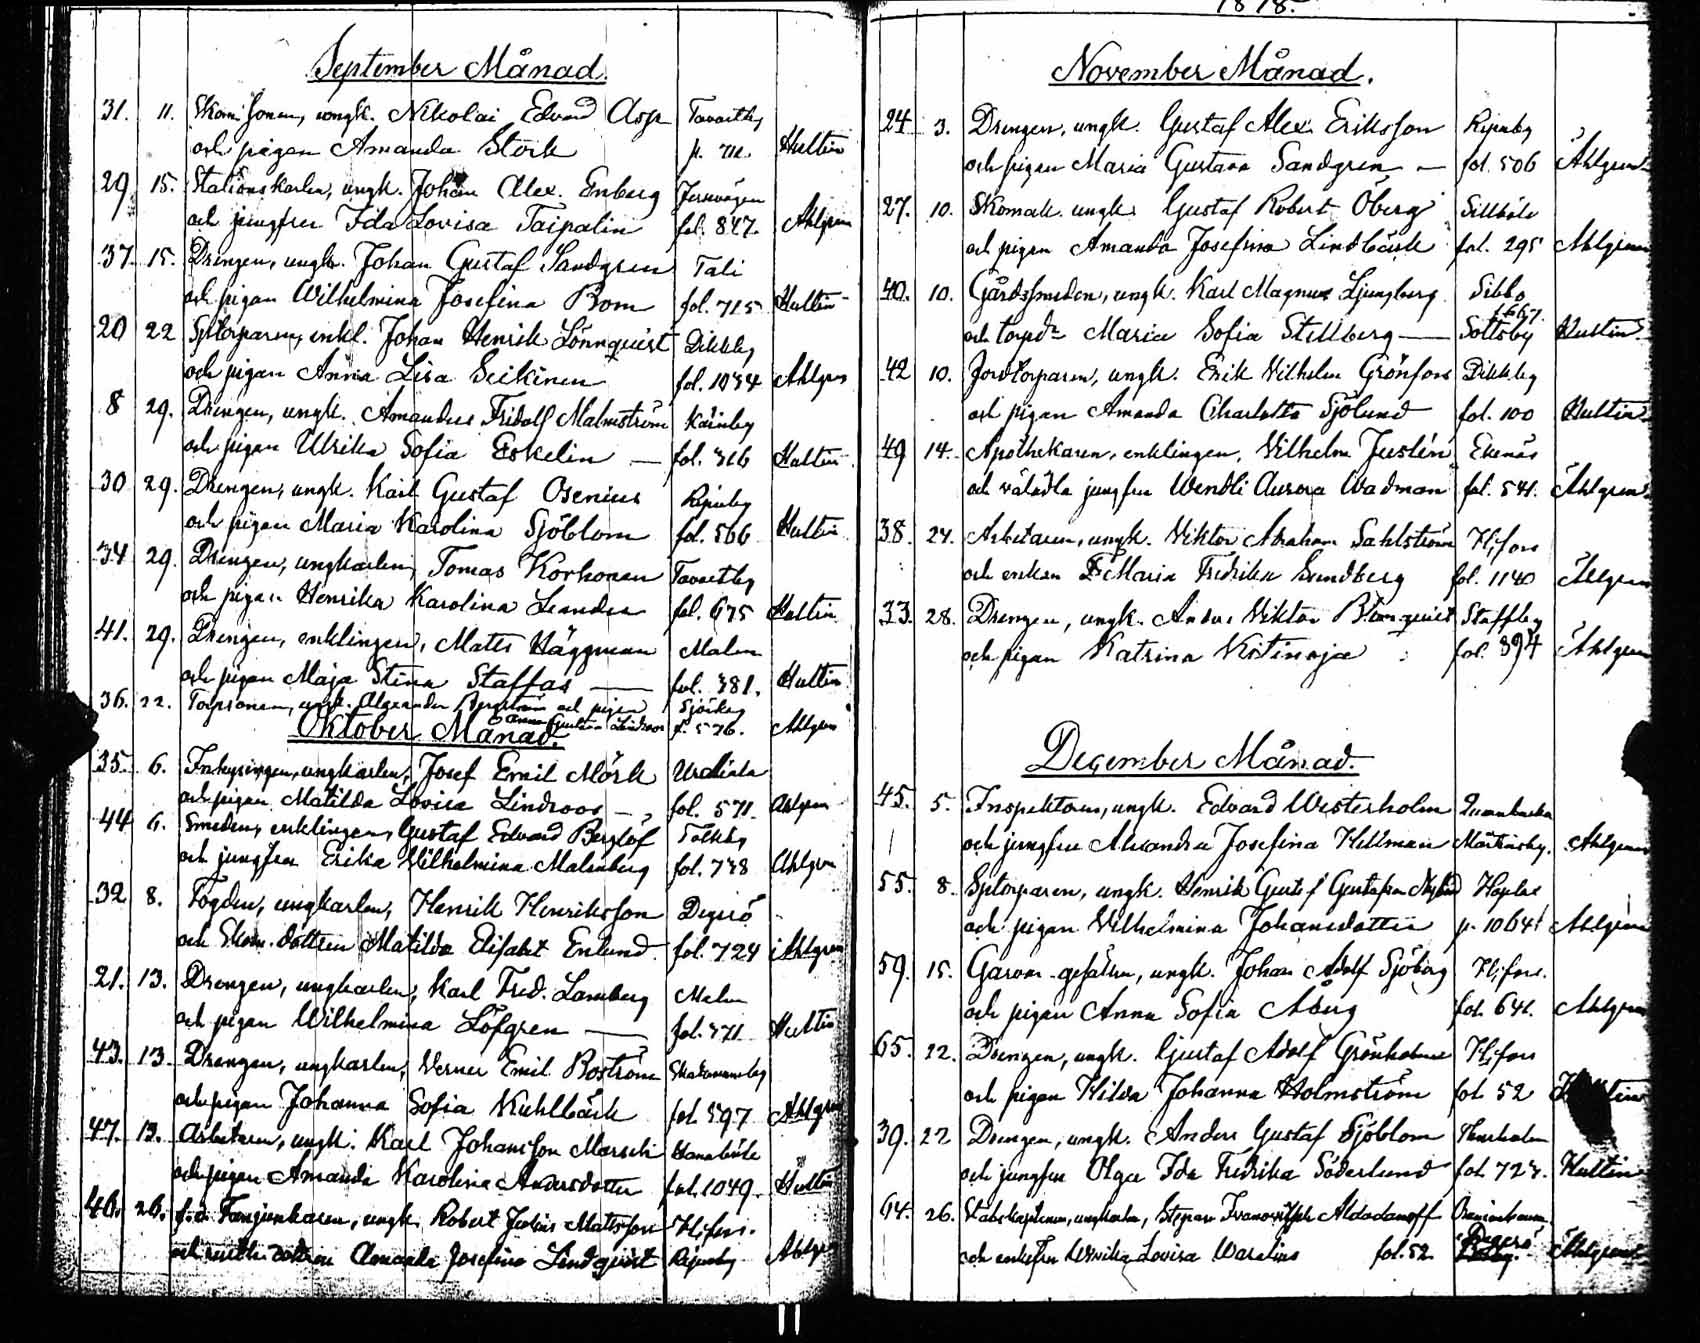 September Månad.
31. 11. ungk. Nikolai Edvard Asp Tavastby
och pigan Amanda Störk p. 711. Hultin
29 15. Stationskarlen, ungk. Johan Alex. Enberg Jernvägen
och jungfru Ida Lovisa Taipalin fol. 847. Ahlgren
37 15. Drengen, ungk. Johan Gustaf Sandgren Tali
och pigan Wilhelmina Josefina Bom fol. 715 Hultin
20 22 Sptorparen, enkl. Johan Henrik Lönnquist Dikkby
och pigan Anna Lisa Seikinen fol. 1034 Ahlgren
8 29. Drengen, ungk. Amandus Fridolf Malmström Kårby
och pigan Ulrika Sofia Eskelin — fol. 316 Hultin
30 29. Drengen, ungk. Karl Gustaf Osenius
och pigan Maria Karolina Sjöblom fol. 566 Hultin
34 29. Drengen, ungkarlen, Tomas Korhonen Tavastby
och pigan Henrika Karolina Leander fol. 675 Hultin
41. 29. Drengen, enklingen, Mats Häggman Malm
och pigan Maja Stina Staffas — fol. 381. Hultin
36. 22. Torpsonen, ungk. Alexander Bergström och pigan
Gustava Lindroos f. 576. Ahlgren
Oktober Månad.
35. 6. ungkarlen, Josef Emil Mörk Urdiala
och pigan Matilda Lovisa Lindroos — fol. 571. Ahlgren
44 6. Smeden, enklingen, Gustaf Edvard Berglöf Tolkby
och jungfru Erika Wilhelmina Malmberg fol. 738 Ahlgren
32 8. Fogden, ungkarlen, Henrik Henriksson Degerö
och Skom. dottren Matilda Elisabet Enlund fol. 724 Ahlgren
21. 13. Drengen, ungkarlen, Karl Fred. Lamberg Malm
och pigan Wilhelmina Löfgren — fol. 371 Hultin
43. 13. Drengen, ungkarlen, Verner Emil Boström
och pigan Johanna Sofia Kuhlbäck fol. 597 Ahlgren
47. 13. Arbetaren, ungk. Karl Johansson Marsch
och pigan Amanda Karolina Andersdotter fol. 1049. Hultin
46. 26. f.d. Fanjunkaren, ungk. Robert Julius Matsson H:fors.
och dottren Amanda Josefina Lindqvist Ahlgren
1878.
November Månad.
24 3. Drengen, ungk. Gustaf Alex. Eriksson
och pigan Maria Gustava Sandgren — fol. 506 Ahlgren
27. 10. Skomak. ungk. Gustaf Robert Öberg Sillböle
och pigan Amanda Josefina Lindbäck fol. 295 Ahlgren
40. 10. Gårdssmeden, ungk. Karl Magnus Ljungberg Sibbo
f. 667.
och torpd:n Maria Sofia Stillberg — Sottsby Hultin
42 10. Jordtorparen, ungk. Erik Vilhelm Grönfors Dikkby
och pigan Amanda Charlotta Sjölund fol. 100 Hultin
49 14. Apothekaren, enklingen, Vilhelm Juslén Ekenäs
och välädla jungfru Wendli Aurora Wadman fol. 541. Ahlgren
38. 24. Arbetaren, ungk. Viktor Abraham Sahlström H:fors
och enkan Maria Fredrika Sundberg fol. 1140 Ahlgren
33. 28. Drengen, ungk. Anders Viktor Blomquist Staffby
och pigan Katrina Kitinoja fol. 394 Ahlgren
December Månad.
45. 5. Inspektoren, ungk. Edvard Westerholm
och jungfru Alexandra Josefina Hellman Mårtensby. Ahlgren
55. 8. Sptorparen, ungk. Henrik Gustaf Gustafsson Nylund
och pigan Vilhelmina Johansdotter p. 1064 Ahlgren
59. 15. Garvare-gesällen, ungk. Johan Adolf Sjöberg H:fors.
och pigan Anna Sofia Åberg fol. 641. Ahlgren
65. 22. Drengen, ungk. Gustaf Adolf Grönholm H:fors
och pigan Hilda Johanna Holmström fol. 52 Hultin
39. 22 Drengen, ungk. Anders Gustaf Sjöblom Turholm
och jungfru Olga Ida Fredrika Söderlund fol. 723. Hultin
64. 26. Stabskaptenen, ungkarlen, Stepan Ivanovitsch Aldadanoff
och enkefru Ulrika Lovisa Waselius fol. 52 Degerö Ahlgren
11